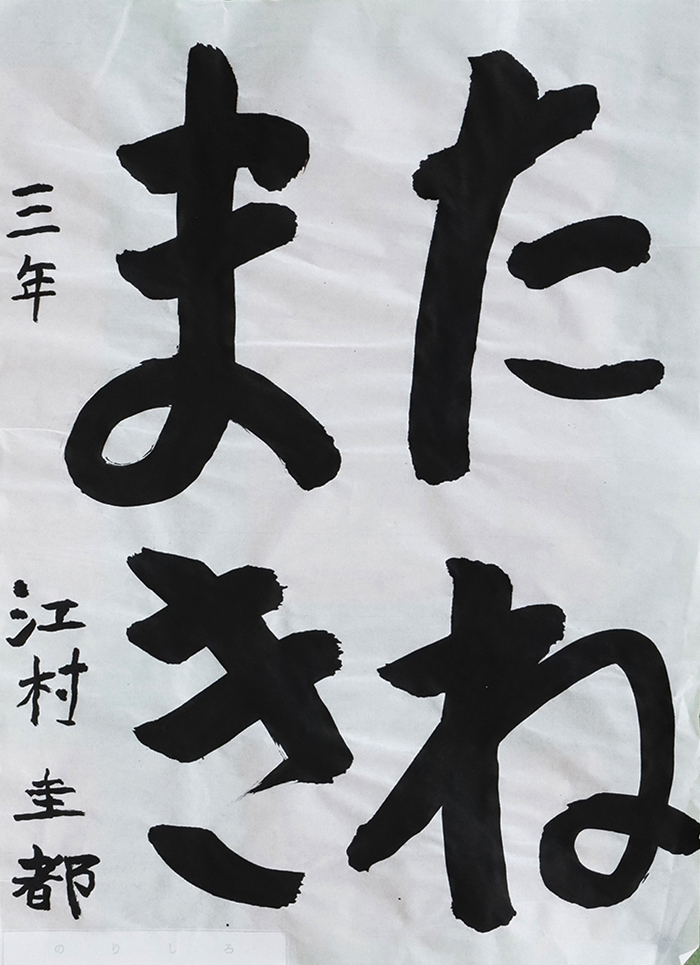 たね
まき
三年 江村 圭都
のりしろ